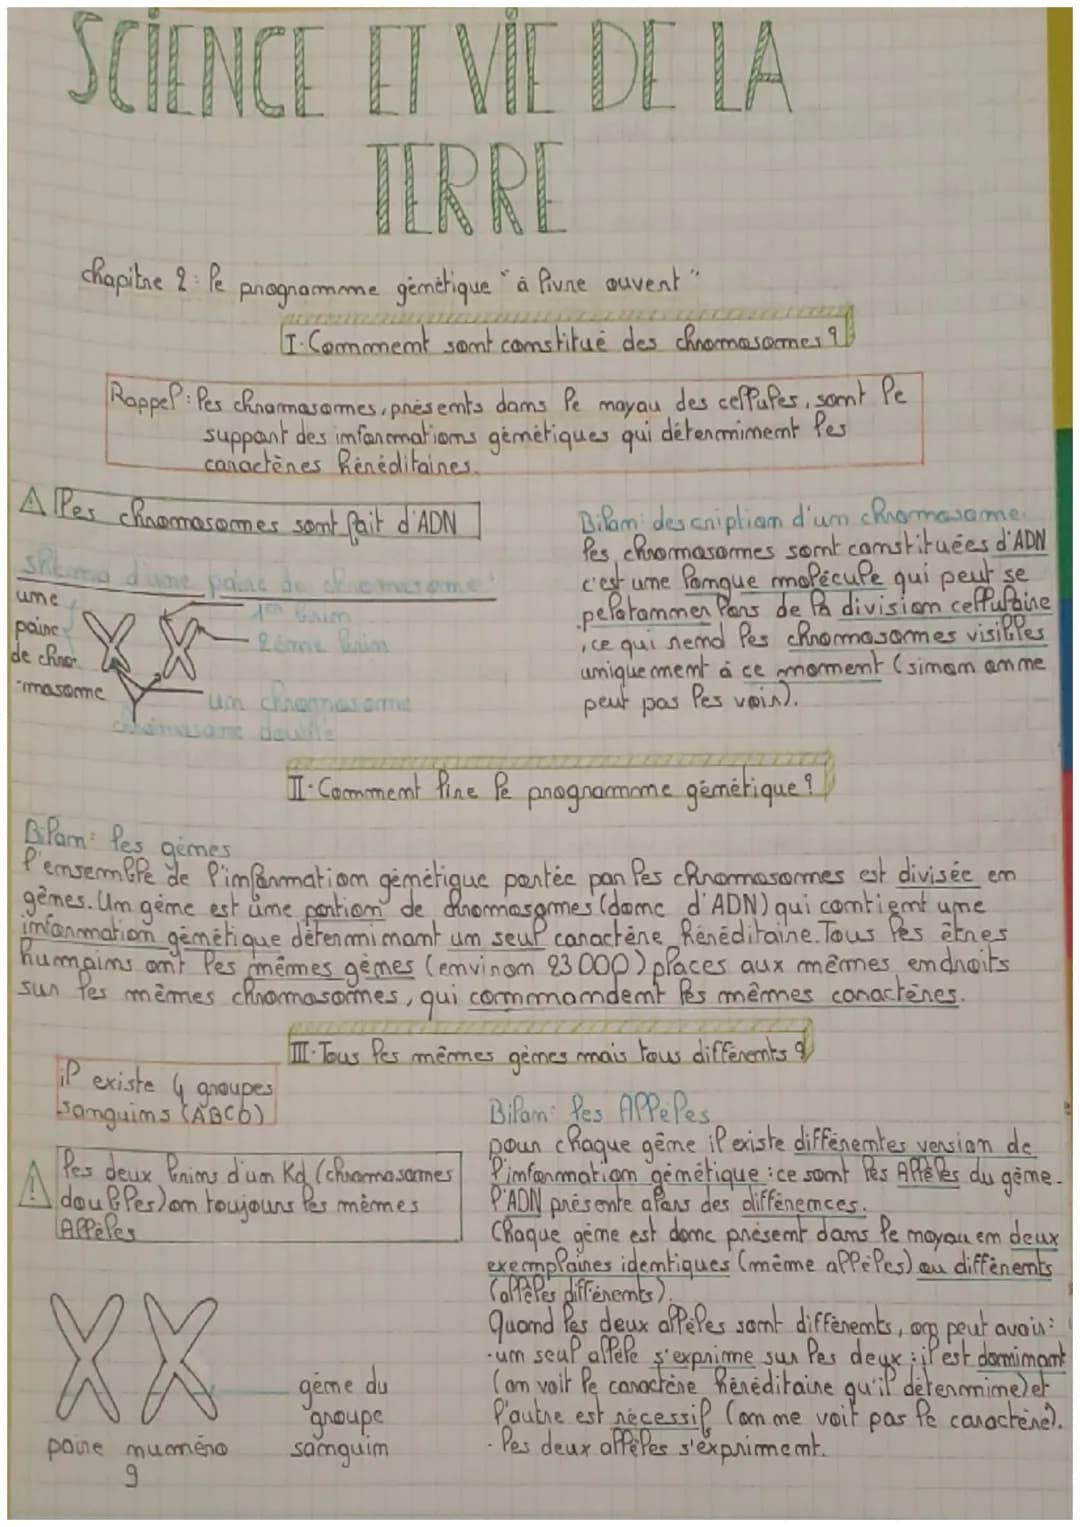 SCIENCE ET VIE DE LA
TERRE
Chapitre 2 : le programme génétique "à livre ouvert"
I- Comment sont constitué des chromosomes ?
Rappel : les chromosomes, présents dans le noyau des cellules, sont le
support des informations génétiques qui déterminent les
caractères héréditaires.
⚠ Les chromosomes sont fait d'ADN
shéma d'une paire de chromosome :
une
paire
de chro-
-mosome
1er brin
2ème brin
un chromosome
chromosome double
Bilan : description d'un chromosome.
les chromosomes sont constituées d'ADN
c'est une longue molécule qui peut se
pelotonner lors de la division cellulaire
, ce qui rend les chromosomes visibles
uniquement à ce moment (sinon on ne
peut pas les voir).
II- Comment lire le programme génétique ?
Bilan : les gènes
l'ensemble de l'information génétique portée par les chromosomes est divisée en
gênes. Un gène est une portion de chromosomes (donc d'ADN) qui contient une
information génétique déterminant un seul caractère héréditaire. Tous les êtres
humains ont les mêmes gènes (environ 23 000) places aux mêmes endroits
sur les mêmes chromosomes, qui commandent les mêmes caractères.
III- Tous les mêmes gènes mais tous différents ?
il existe 4 groupes
sanguins (ABCO)
⚠ les deux brins d'un Kd (chromosomes
doubles) on toujours les mêmes
Allèles
paire numéro
9
gène du
groupe
sanguin
Bilan : les Allèles
pour chaque gêne il existe différentes version de
l'information génétique : ce sont les Allèles du gène.
l'ADN présente alors des différences.
Chaque gène est donc présent dans le noyau en deux
exemplaires identiques (même allèles) ou différents
(allèles différents).
Quand les deux allèles sont différents, on peut avoir :
- un seul allèle s'exprime sur les deux : il est dominant
(on voit le caractère héréditaire qu'il détermine) et
l'autre est récessif (on ne voit pas le caractère).
- les deux allèles s'expriment.